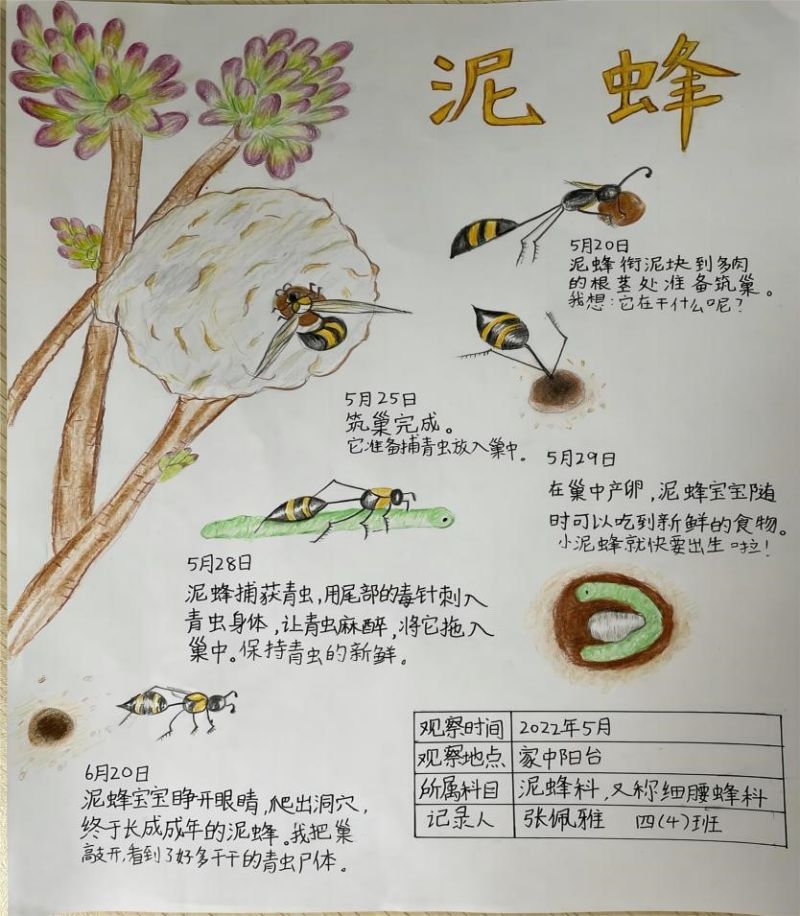 泥蜂
5月20日
泥蜂衔泥块到多肉
的根茎处准备筑巢。
我想:它在干什么呢?
5月25日
筑巢完成。
它准备捕青虫放入巢中。
5月28日
泥蜂捕获青虫,用尾部的毒针刺入
青虫身体,让青虫麻醉,将它拖入
巢中。保持青虫的新鲜。
5月29日
在巢中产卵,泥蜂宝宝随
时可以吃到新鲜的食物。
小泥蜂就快要出生啦!
6月20日
泥蜂宝宝睁开眼睛,爬出洞穴,
终于长成成年的泥蜂。我把巢
敲开,看到了好多干干的青虫尸体。
观察时间 2022年5月
观察地点 家中阳台
所属科目 泥蜂科,又称细腰蜂科
记录人 张佩雅 四(4)班